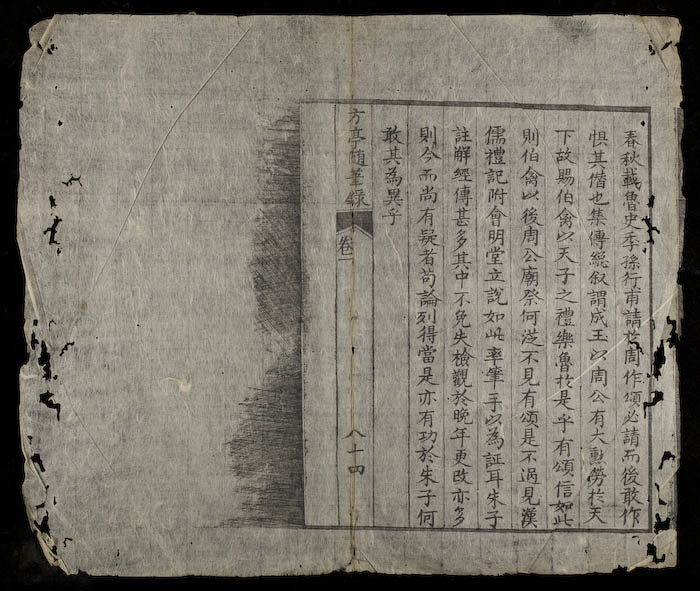 春秋載魯史季孫行甫請於周作頌必請而後敢作
惧其僭也集傳緫叙謂成王以周公有大勲勞於天
下故賜伯禽以天子之禮樂魯於是乎有頌信如此
則伯禽以後周公廟祭何從不見有頌是不過見漢
儒禮記附會明堂立說如此率筆手以為証耳朱子
註解經傳甚多其中不免失檢觀於晚年更改亦多
則今而尚有疑者苟論列得當是亦有功於朱子何
敢其為異乎
方亭隨筆錄
卷一
八十四